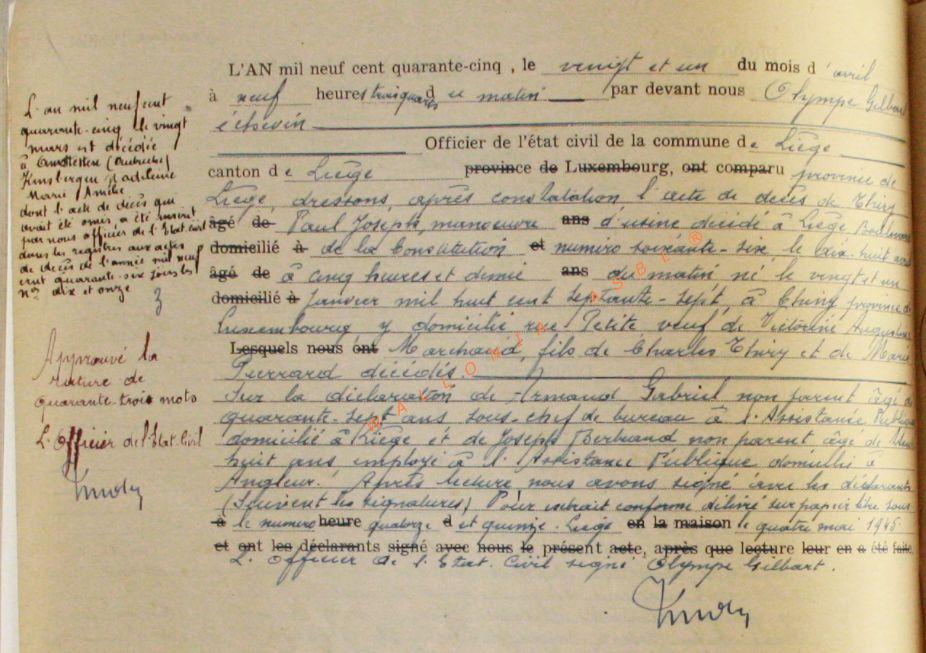 L'an mil neuf cent
quarante-cinq le vingt
mars est décédée
à (Autriche)
Kinsbergen Madeleine
Marie Amélie
dont l'acte de décès qui
avait été omis a été inscrit
par nous officier de l'Etat civil
dans les registres aux actes
de décès de l'année mil neuf
cent quarante-six sous les
nos dix et onze
Approuvé la
rature de
quarante-trois mots
L'Officier de l'Etat Civil
L'AN mil neuf cent quarante-cinq, le vingt et un du mois d'avril
à neuf heures trois quarts d u matin par devant nous Olympe Gilbart
échevin
Officier de l'état civil de la commune de Liège
canton de Liège province de Luxembourg, ont comparu province de
Liège, dressons, après constatation l'acte de décès de Thiry
âgé de Paul Joseph, manoeuvre ans d'usine décédé à Liège Boulevard
domicilié à de la Constitution et numéro soixante-six, le dix-huit avril
âgé de à cinq heures et demie ans du matin né le vingt et un
domicilié à Janvier mil huit cent septante-sept, à Chiny province de
Luxembourg y domicilié rue Petite veuf de Victorine Augustine
Lesquels nous ont Marchand, fils de Charles Thiry et de Marie
Pierrard décédés.
Sur la déclaration de Armand Gabriel non parent âgé de
quarante-sept ans sous-chef de bureau à l'Assistance Publique
domicilié à Liège et de Joseph Bertrand non parent âgé de
huit ans, employé à l'Assistance Publique domicilié à
Angleur. Après lecture nous avons signé avec les déclarants
(Suivent les signatures) Pour extrait conforme délivré sur papier libre sous
à le numéro heure quatorze d et quinze. Liège en la maison le quatre mai 1945
et ont les déclarants signé avec nous le présent acte, après que lecture leur en a été faite.
L'Officier de l'Etat Civil signé Olympe Gilbart.